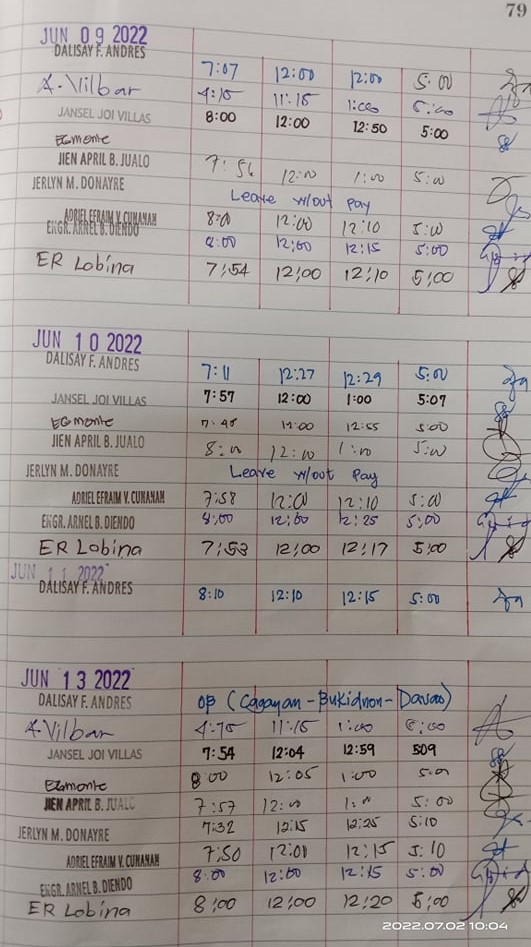 79
JUN 09 2022
DALISAY F. ANDRES 7:07 12:00 12:00 5:00
A. Vilbar 4:15 11:15 1:00 5:00
JANSEL JOI VILLAS 8:00 12:00 12:50 5:00
EGmonte
JIEN APRIL B. JUALO 7:56 12:00 1:00 5:00
JERLYN M. DONAYRE Leave w/out Pay
ADRIEL EFRAIM V. CUNANAN 8:00 12:00 12:10 5:00
ENGR. ARNEL B. DIENDO 8:00 12:00 12:15 5:00
ER Lobina 7:54 12:00 12:10 5:00
JUN 10 2022
DALISAY F. ANDRES 7:11 12:27 12:29 5:00
JANSEL JOI VILLAS 7:57 12:00 1:00 5:07
EGmonte 12:00 12:55 5:00
JIEN APRIL B. JUALO 8:00 12:00 1:00 5:00
JERLYN M. DONAYRE Leave w/out Pay
ADRIEL EFRAIM V. CUNANAN 7:58 12:00 12:10 5:00
ENGR. ARNEL B. DIENDO 8:00 12:00 12:25 5:00
ER Lobina 7:53 12:00 12:17 5:00
JUN 11 2022
DALISAY F. ANDRES 8:10 12:10 12:15 5:00
JUN 13 2022
DALISAY F. ANDRES OB (Cagayan - Bukidnon - Davao)
A. Vilbar 11:15 1:00
JANSEL JOI VILLAS 7:54 12:04 12:59 509
EGmonte 8:00 12:05 1:00 5:00
JIEN APRIL B. JUALO 7:57 12:00 1:00 5:00
JERLYN M. DONAYRE 7:32 12:15 12:25 5:10
ADRIEL EFRAIM V. CUNANAN 7:50 12:01 12:15 5:10
ENGR. ARNEL B. DIENDO 8:00 12:00 12:15 5:00
ER Lobina 8:00 12:00 12:20 5:00
2022.07.02 10:04